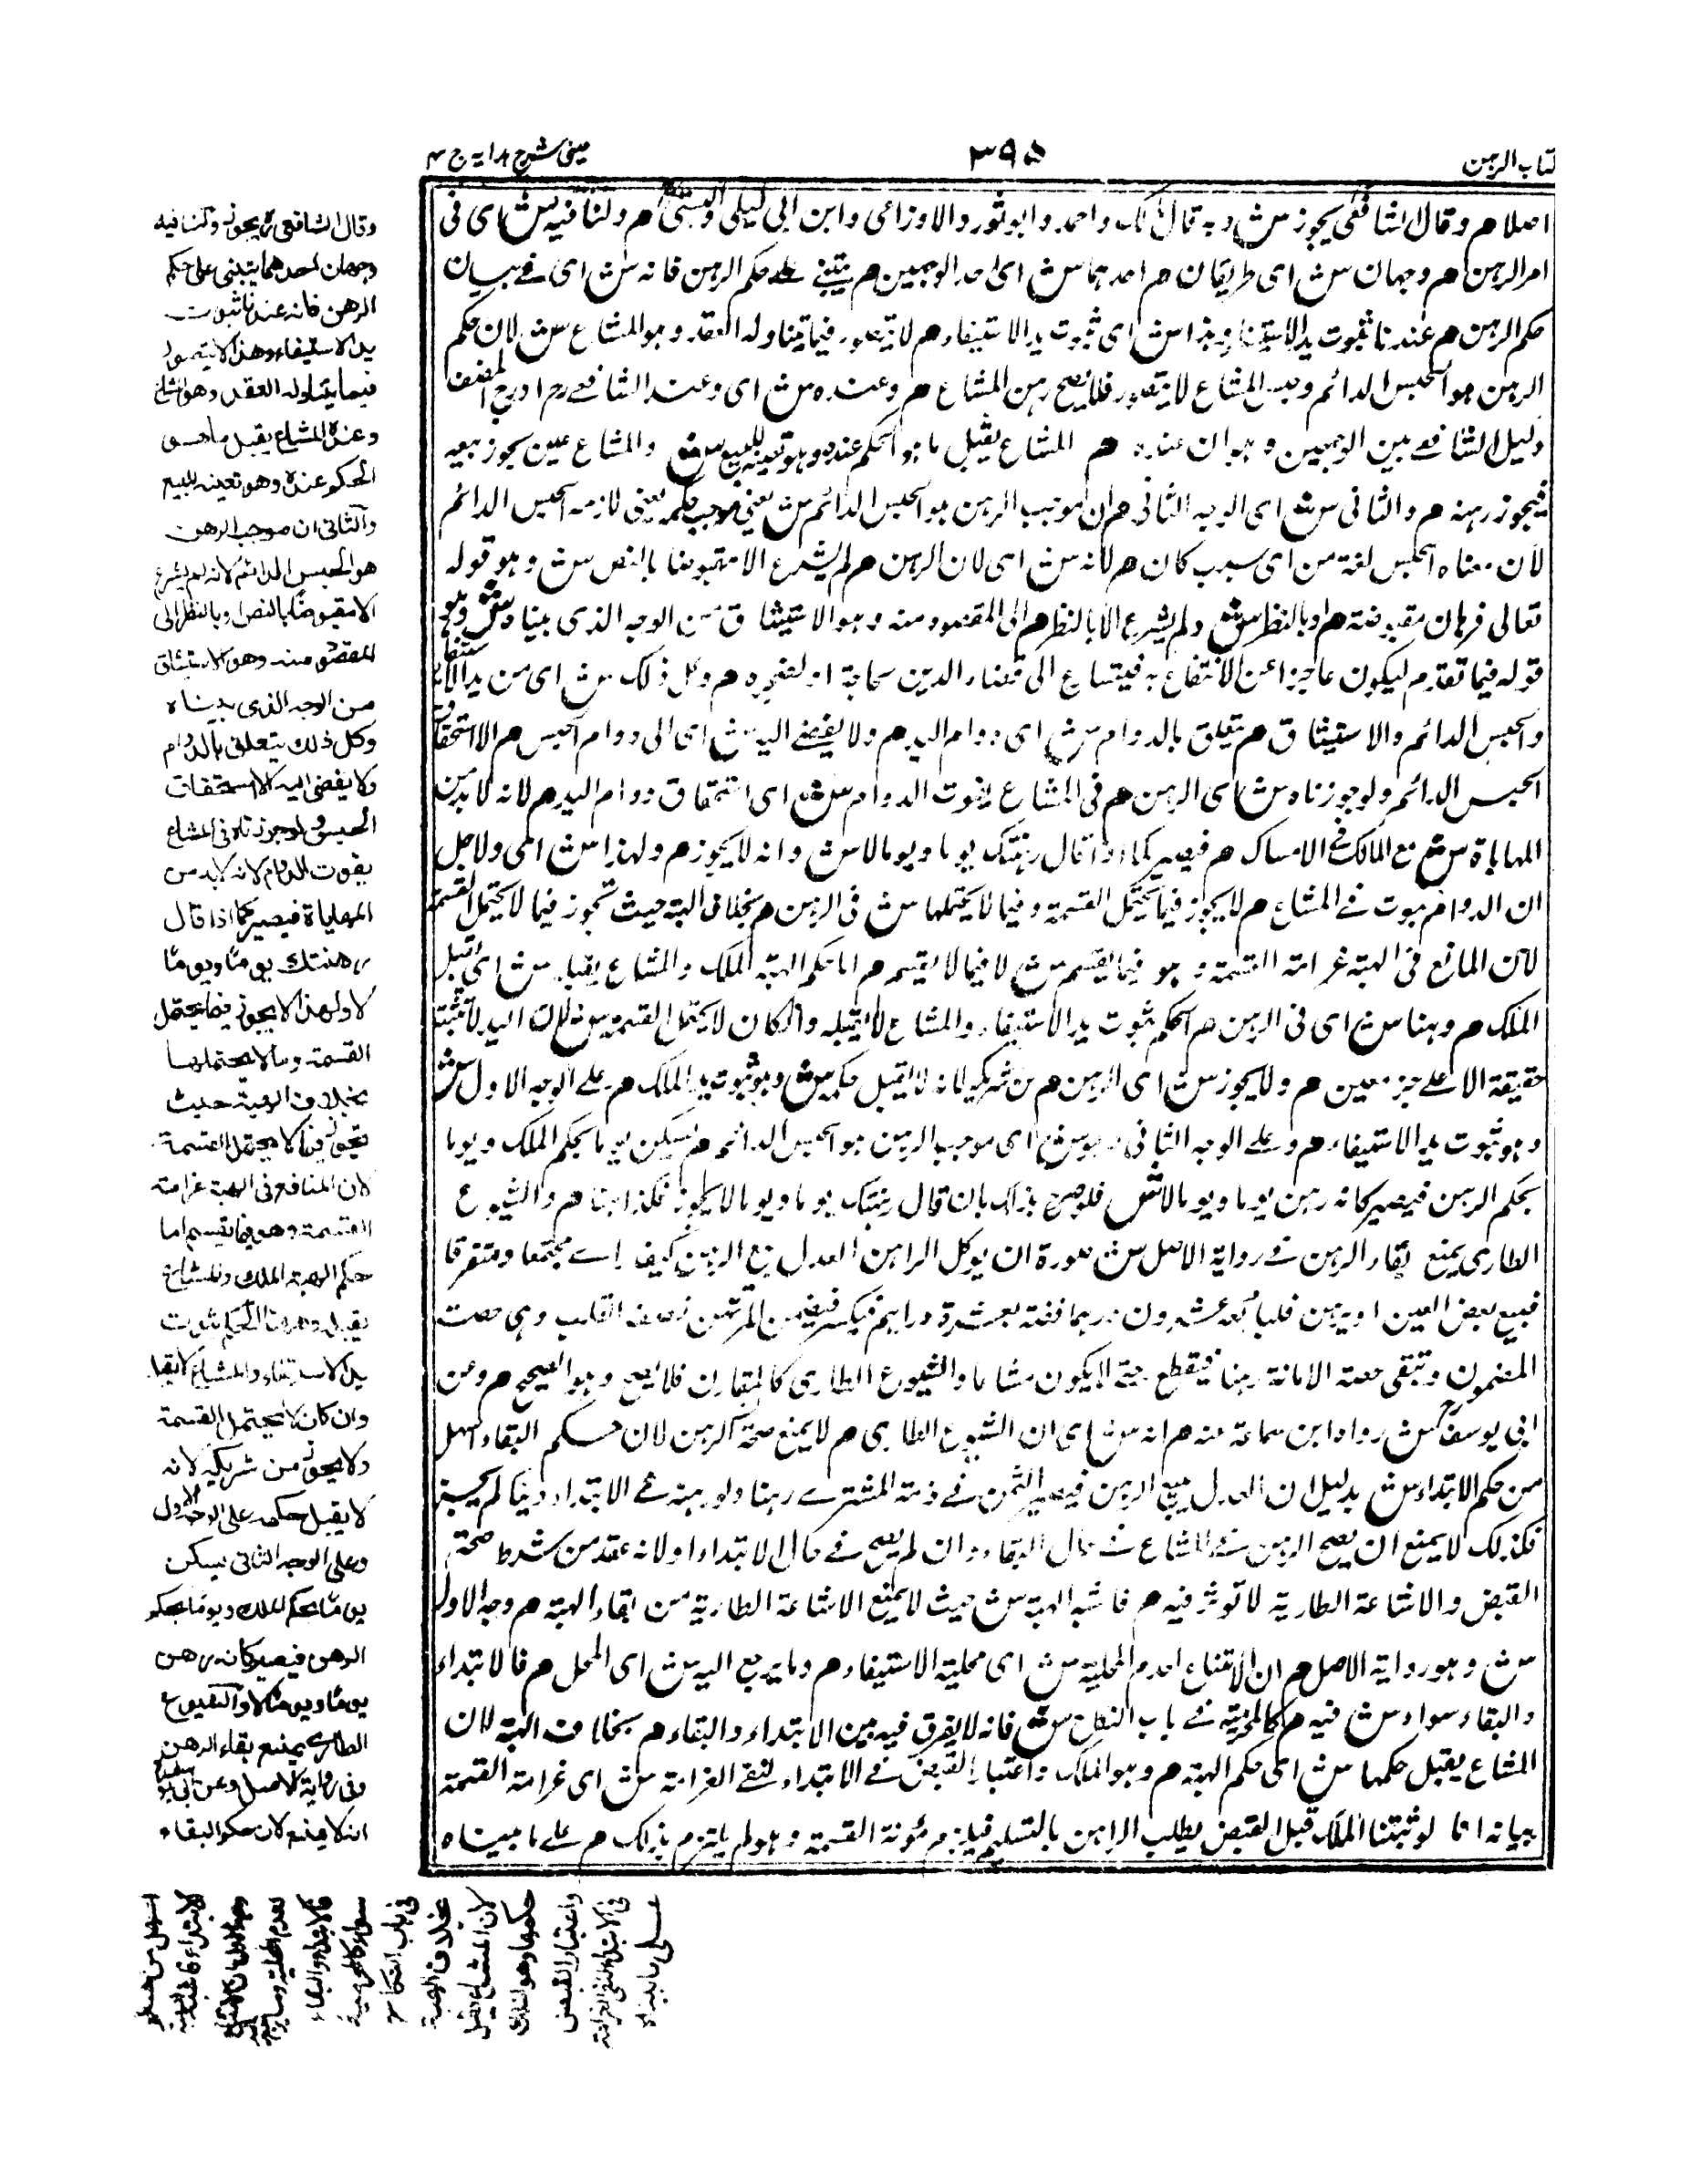 كتاب الرهن
٣٩٥
عینی شرح هدایه ج ٤
اصلا م وقال الشافعی یجوز ش وبه قال مالک واحمد وابو ثور والاوزاعی وابن ابی لیلی والبتی م ولنا فیه ش ای فی
امر الرهن م وجهان ش ای طریقان م احدهما ش ای احد الوجهین م یبتنی علی حکم الرهن فانه ش ای فی بیان
حکم الرهن م عندنا ثبوت ید الاستیفاء وهذا ش ای ثبوت ید الاستیفاء م لا یتصور فیما یتناوله العقد وهو المشاع ش لان حکم
الرهن هو الحبس الدائم وحبس المشاع لا یتصور فلا یصح رهن المشاع م وعنده ش ای وعند الشافعی رح ادرج المصنف
دلیل الشافعی بین الوجهین وهو ان عنده م المشاع یقبل ما هو الحکم عنده وهو تعینه للبیع ش والمشاع عین یجوز بیعه
فیجوز رهنه م والثانی ش ای الوجه الثانی م ان موجب الرهن هو الحبس الدائم ش یعنی موجب حکمه یعنی لازمه الحبس الدائم
لان معناه الحبس لغة من ای سبب کان م لانه ش ای لان الرهن م لم یشرع الا مقبوضا بالنص ش وهو قوله
تعالی فرهان مقبوضة م او بالنظر ش ولم یشرع الا بالنظر م الی المقصود منه وهو الاستیثاق من الوجه الذی بیناه ش وهو
قوله فیما تقدم لیکون عاجزا عن الانتفاع به فیتسارع الی قضاء الدین لحاجة او لضجره م وکل ذلک ش ای من ید الاستیفاء
والحبس الدائم والاستیثاق م یتعلق بالدوام ش ای دوام الید م ولا یفضی الیه ش ای الی دوام الحبس م الا استحقاق
الحبس الدائم ولو جوزناه ش ای الرهن م فی المشاع یفوت الدوام ش ای استحقاق دوام الید م لانه لا بد من
المهایاة ش مع المالک فی الامساک م فیصیر کما اذا قال رهنتک یوما ویوما لا ش وانه لا یجوز م ولهذا ش ای ولاجل
ان الدوام یفوت فی المشاع م لا یجوز فیما یحتمل القسمة وفیما لا یحتملها ش فی الرهن م بخلاف الهبة حیث تجوز فیما لا یحتمل القسمة
لان المانع فی الهبة غرامة القسمة وهو فیما یقسم ش لا فیما لا یقسم م اما حکم الهبة الملک والمشاع یقبله ش ای یقبل
الملک م وهنا ش ای فی الرهن م الحکم ثبوت ید الاستیفاء والمشاع لا یقبله وان کان لا یحتمل القسمة ش لان الید لا تثبت
حقیقة الا علی جزء معین م ولا یجوز ش ای الرهن م من شریکه لانه لا یقبل حکمه ش وهو ثبوت ید الملک م علی الوجه الاول ش
وهو ثبوت ید الاستیفاء م وعلی الوجه الثانی ش وهو ش ای موجب الرهن هو الحبس الدائم م یسکن یوما بحکم الملک ویوما
بحکم الرهن فیصیر کانه رهن یوما ویوما لا ش فلو صرح بذلک بان قال رهنتک یوما ویوما لا یجوز فکذا هنا م والشیوع
الطاری یمنع بقاء الرهن فی روایة الاصل ش صورة ان یوکل الراهن العدل ببیع الرهن کیف ای مجتمعا ومتفرقا
فیبیع بعض العین او یرهن قلبا عشرون درهما فضة بعشرة دراهم فیکسر فیضمن المرتهن نصف القلب وهی حصة
المضمون وتبقی حصة الامانة رهنا فیقطع حتی لا یکون مشاعا والشیوع الطاری کالمقارن فلا یصح وهو الصحیح م وعن
ابی یوسف رح ش رواه ابن سماعة عنه م انه ش ای ان الشیوع الطاری م لا یمنع صحة الرهن لان حکم البقاء اسهل
من حکم الابتداء ش بدلیل ان العدل یبیع الرهن فیصیر الثمن فی ذمة المشتری رهنا ولو رهنه فی الابتداء دینا لم یجز
فکذلک لا یمنع ان یصح الرهن فی المشاع فی حال البقاء وان لم یصح فی حال الابتداء او لانه عقد من شرط صحته
القبض والاشاعة الطاریة لا تؤثر فیه م فاشبه الهبة ش حیث لا یمنع الاشاعة الطاریة من بقاء الهبة م وجه الاول
ش وهو روایة الاصل م ان الامتناع لعدم المحلیة ش ای محلیة الاستیفاء م وما یرجع الیه ش ای المحل م فالابتداء
والبقاء سواء ش فیه م کالمحرمیة فی باب النکاح ش فانه لا یفرق فیه بین الابتداء والبقاء م بخلاف الهبة لان
المشاع یقبل حکمها ش ای حکم الهبة م وهو الملک واعتبار القبض فی الابتداء لنفی الغرامة ش ای غرامة القسمة
بیانه انا لو ثبتنا الملک قبل القبض یطلب الراهن بالتسلیم فیلزم مؤنة القسمة وهو لم یلتزم بذلک م علی ما بیناه
وقال الشافعی رح یجوز ولنا فیه
وجهان احدهما یبتنی علی حکم
الرهن فانه عندنا ثبوت
ید الاستیفاء وهذا لا یتصور
فیما یتناوله العقد وهو المشاع
وعنده المشاع یقبل ما هو
الحکم عنده وهو تعینه للبیع
والثانی ان موجب الرهن
هو الحبس الدائم لانه لم یشرع
الا مقبوضا بالنص او بالنظر الی
المقصود منه وهو الاستیثاق
من الوجه الذی بیناه
وکل ذلک یتعلق بالدوام
ولا یفضی الیه الا استحقاق
الحبس ولو جوزناه فی المشاع
یفوت الدوام لانه لا بد من
المهایاة فیصیر کما اذا قال
رهنتک یوما ویوما
لا ولهذا لا یجوز فیما یحتمل
القسمة وما لا یحتملها
بخلاف الهبة حیث
تجوز فیما لا یحتمل القسمة
لان المانع فی الهبة غرامة
القسمة وهو فیما یقسم اما
حکم الهبة الملک والمشاع
یقبله وههنا الحکم ثبوت
ید الاستیفاء والمشاع لا یقبله
وان کان لا یحتمل القسمة
ولا یجوز من شریکه لانه
لا یقبل حکمه علی الوجه الاول
وعلی الوجه الثانی یسکن
یوما بحکم الملک ویوما بحکم
الرهن فیصیر کانه رهن
یوما ویوما لا والشیوع
الطاری یمنع بقاء الرهن
وفی روایة الاصل وعن ابی یوسف
انه لا یمنع لان حکم البقاء
اسهل من حکم
الابتداء فاشبه الهبة
وجه الاول ان الامتناع
لعدم المحلیة وما یرجع الیه
فالابتداء والبقاء
سواء کالمحرمیة
فی باب النکاح
بخلاف الهبة
لان المشاع یقبل
حکمها وهو الملک
واعتبار القبض
فی الابتداء لنفی الغرامة
علی ما بیناه